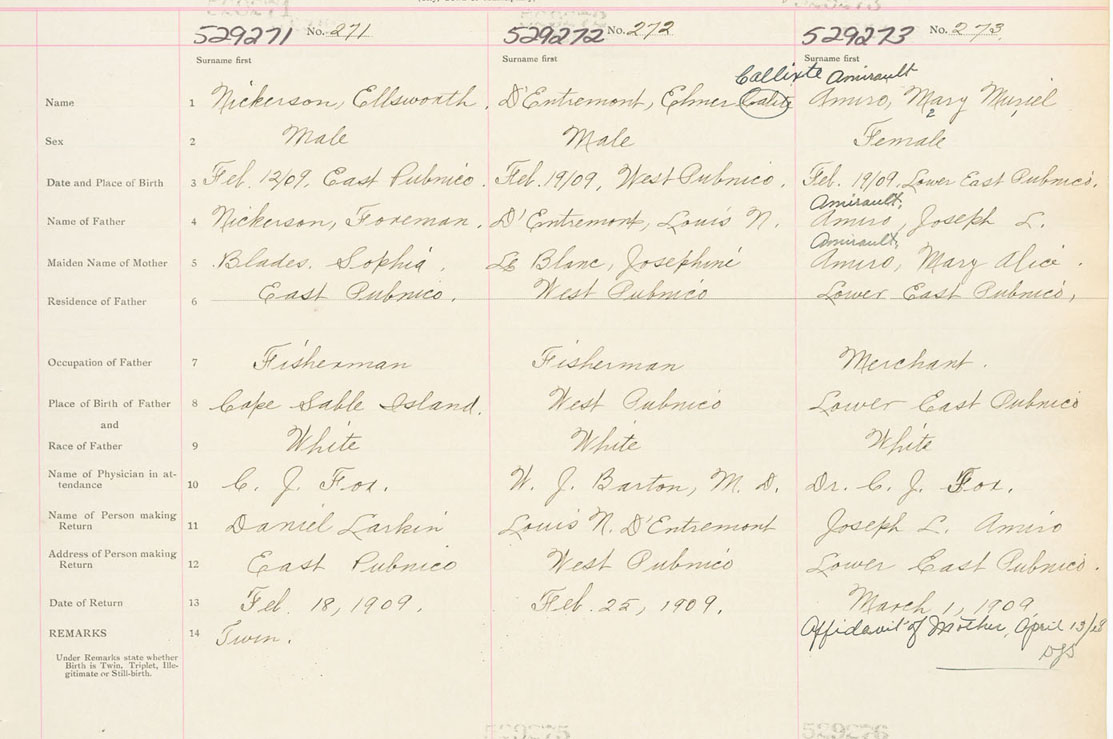 529271 No. 271 529272 No. 272 529273 No. 273
Surname first Surname first Surname first
Callixte Amirault
Name 1 Nickerson, Ellsworth. D'Entremont, Elmer Calite Amiro, Mary Muriel
2
Sex 2 Male Male Female
Date and Place of Birth 3 Feb. 12/09, East Pubnico. Feb. 19/09, West Pubnico. Feb. 19/09, Lower East Pubnico.
Amirault,
Name of Father 4 Nickerson, Foreman. D'Entremont, Louis N. Amiro, Joseph L.
Amirault,
Maiden Name of Mother 5 Blades. Sophia. Le Blanc, Josephine Amiro, Mary Alice.
Residence of Father 6 East Pubnico. West Pubnico Lower East Pubnico,
Occupation of Father 7 Fisherman Fisherman Merchant.
Place of Birth of Father 8 Cape Sable Island. West Pubnico Lower East Pubnico
and
Race of Father 9 White White White
Name of Physician in at-
tendance 10 C. J. Fox. W. J. Barton, M. D. Dr. C. J. Fox.
Name of Person making
Return 11 Daniel Larkin Louis N. D'Entremont Joseph L. Amiro
Address of Person making
Return 12 East Pubnico West Pubnico Lower East Pubnico.
Date of Return 13 Feb. 18, 1909. Feb. 25, 1909. March 1, 1909
REMARKS 14 Twin. Affidavit of Mother, April 13/28
Under Remarks state whether
Birth is Twin, Triplet, Ille-
gitimate or Still-birth.
529275 529276